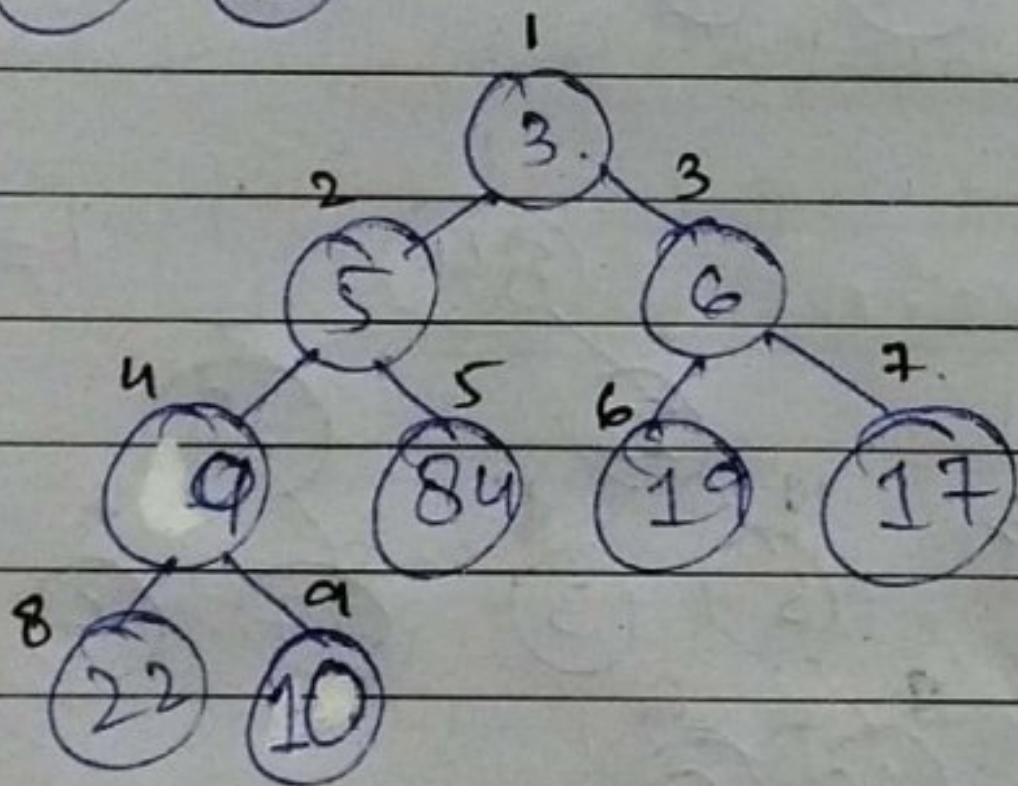 1
3.
2 3
5 6
4 5 6 7.
9 84 19 17
8 9
22 10